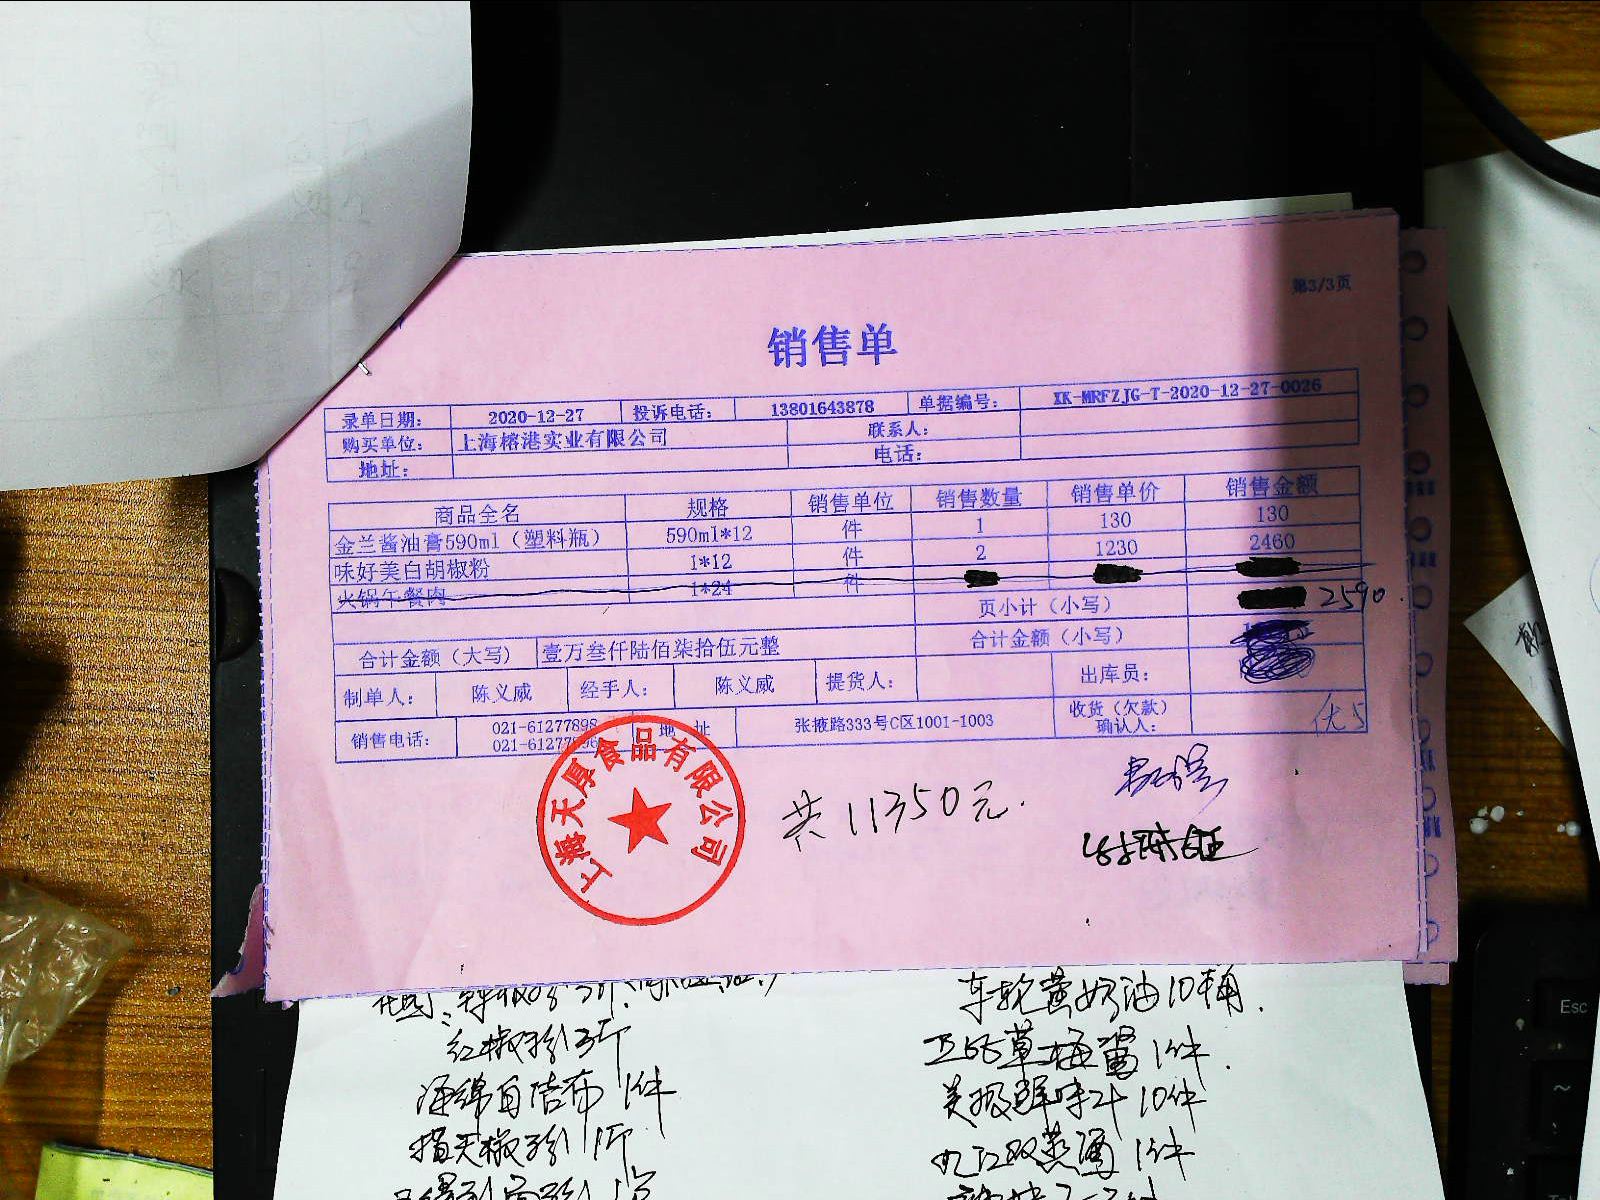 第3/3页
销售单
录单日期： 2020-12-27 投诉电话： 13801643878 单据编号： XK-MRFZJG-T-2020-12-27-0026
购买单位： 上海榕港实业有限公司 联系人：
地址： 电话：
商品全名 规格 销售单位 销售数量 销售单价 销售金额
金兰酱油膏590ml（塑料瓶） 590ml*12 件 1 130 130
味好美白胡椒粉 1*12 件 2 1230 2460
火锅午餐肉 1*24 件
页小计（小写） 2590
合计金额（大写） 壹万叁仟陆佰柒拾伍元整 合计金额（小写）
制单人： 陈义威 经手人： 陈义威 提货人： 出库员：
销售电话： 021-61277898 地 址 张掖路333号C区1001-1003 收货（欠款）确认人：
上海天厚食品有限公司
共11350元.
红椒粉3斤
海绵百洁布 1件
指天椒粉 1斤
车轮黄奶油10桶.
美极鲜味汁10件
九江双蒸酒 1件
Esc